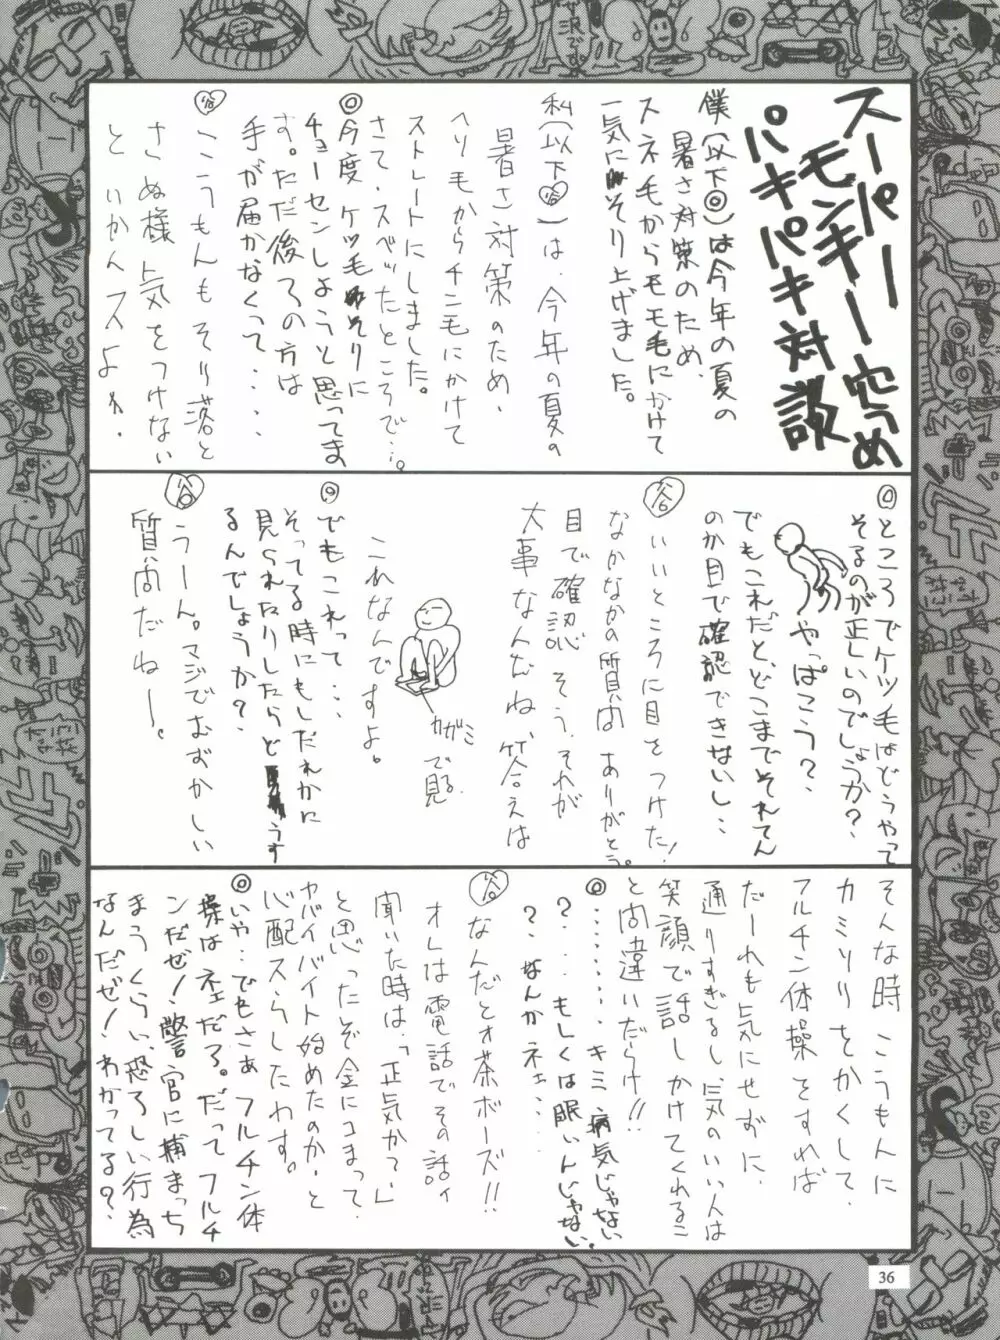 スーパーモンキー穴うめ
パキパキ対談
僕(以下◎)は今年の夏の
暑さ対策のため、
スネ毛からモモ毛にかけて
一気にそり上げました。
私(以下谷)は、今年の夏の
暑さ対策のため、
ヘソ毛からチン毛にかけて
ストレートにしました。
さて、スベッたところで…。
◎今度ケツ毛そりに
チョーセンしようと思ってま
す。ただ後ろの方は
手が届かなくって・・・・
谷 こうもんもそり落と
さぬ様気をつけない
といかんスよ。
◎ところでケツ毛はどうやって
そるのが正しいのでしょうか?
やっぱこう?
でもこれだと、どこまでそれてん
のか目で確認できないし・・
谷 いいところに目をつけた!
なかなかの質問ありがとう。
目で確認、そう、それが
大事なんだね、答えは
カガミで見る
これなんですよ。
◎でもこれって・・・
そってる時にもしだれかに
見られたりしたらどうす
るんでしょうか?
谷 うーん。マジでむずかしい
質問だねー。
そんな時こうもんに
カミソリをかくして、
フルチン体操をすれば
だーれも気にせずに、
通りすぎるし、気のいい人は
笑顔で話しかけてくれるこ
と間違いだらけ!!
◎・・・・・・・・キミ病気じゃない
?・・・もしくは眠いんじゃない
?・なんかネェ・・・
谷 なんだとォ茶ボーズ!!
オレは電話でその話ィ
聞いた時は、「正気かて」
と思ったぞ金にコまって、
ヤバイバイト始めたのか・と
心配スらしたわす。
◎いや・・でもさぁフルチン体
操はネェだろ。だってフルチ
ンだぜ!警官に捕まっち
まうくらい、恐ろしい行為
なんだぜ!わかってる?
36